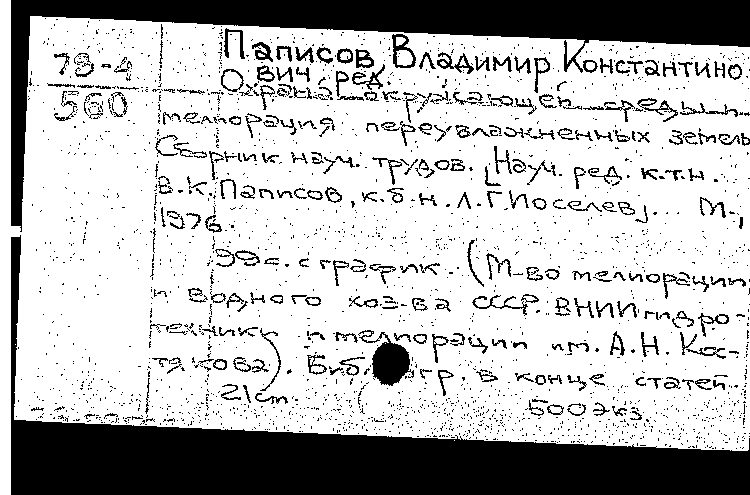 78-4
560
Паписов, Владимир Константино-
вич ред.
Охрана окружающей среды и
мелиорация переувлажненных земель
Сборник науч. трудов. [Науч. ред. к.т.н.
В.К. Паписов, к.б.н. Л.Г. Поселев]. М.,
1976.
99 с. с график. (М-во мелиорации
и водного хоз-ва СССР. ВНИИ гидро-
техники и мелиорации им. А.Н. Кос-
тякова). Библиогр. в конце статей.
21 см.
500 экз